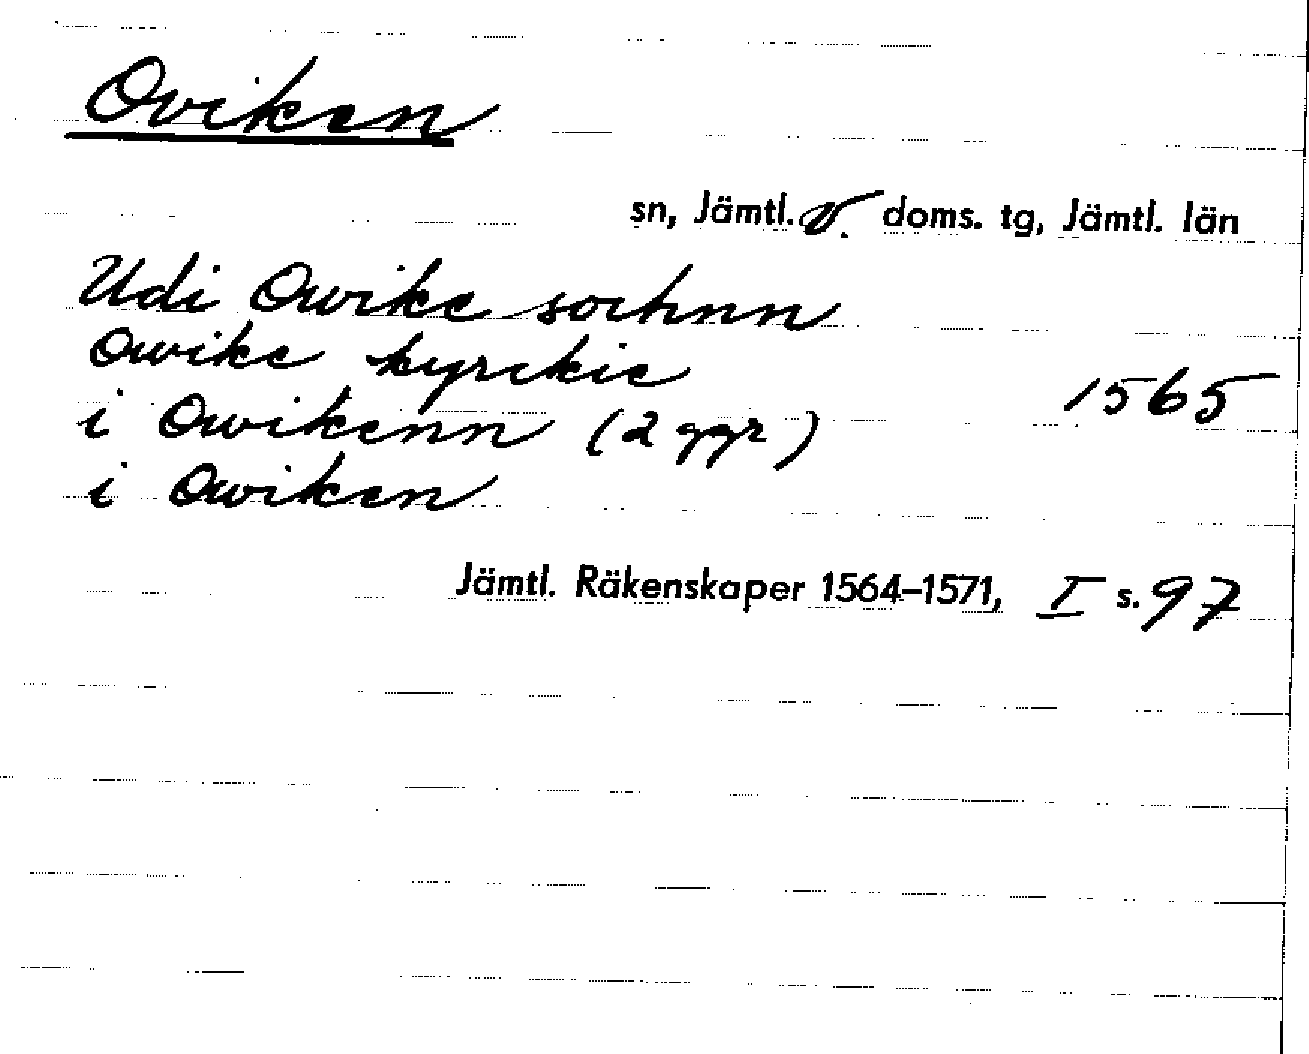 Oviken
sn, Jämtl. v. doms. tg, Jämtl. län
Udi Owike sochnn
Owike kyrckie
i Owikenn (2 ggr)
1565
i Owiken
Jämtl. Räkenskaper 1564–1571, I s. 97